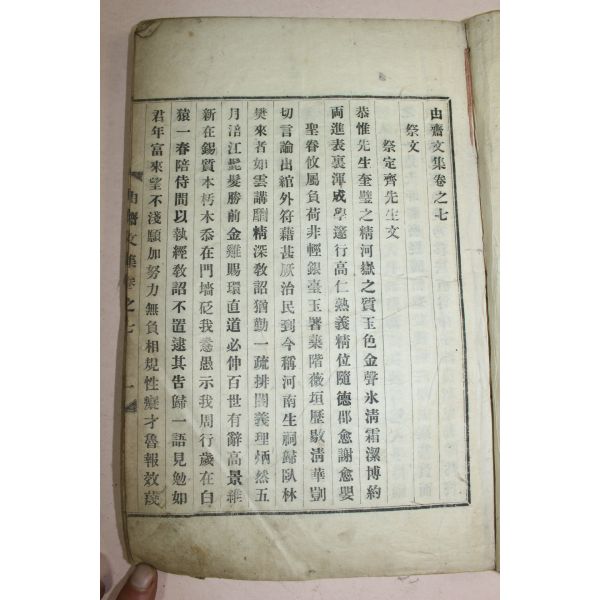 由齋文集卷之七
祭文
祭定齊先生文
恭惟先生奎璧之精河嶽之質玉色金聲氷淸霜潔博約
兩進表裏渾成學邃行高仁熟義精位隨德卲愈謝愈嬰
聖眷攸屬負荷非輕銀臺玉署藥階薇垣歷敭淸華剴
切言論出綰外符藉甚厥治民到今稱河南生祠歸臥林
樊來者如雲講劘精深敎詔猶勤一疏排閤義理炳然五
月涪江髭髮勝前金雞賜環直道必伸百世有辭高景維
新在錫質本朽木忝在門墻砭我惷愚示我周行歲在白
猿一春陪侍間以執經敎詔不置逮其告歸一語見勉如
君年富來望不淺願加努力無負相規性癡才魯報效蔑
由齋文集卷之七
一